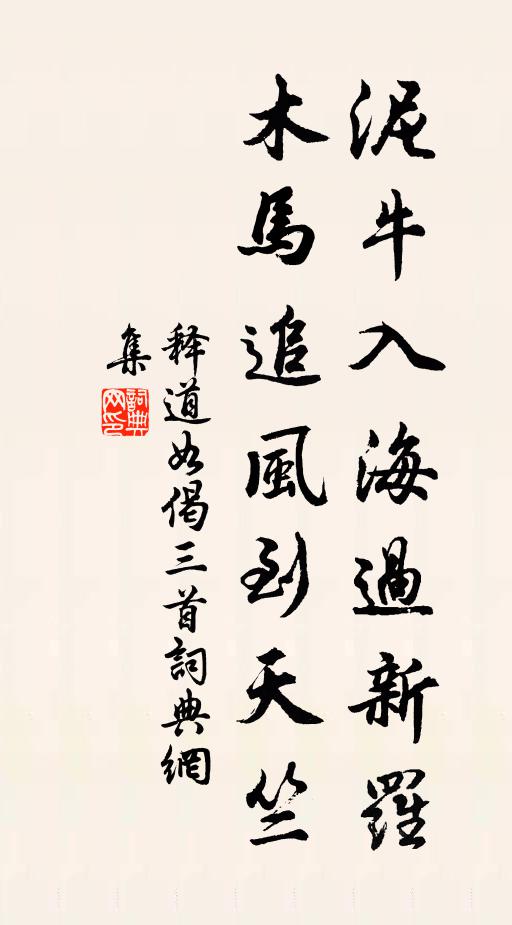 泥牛入海過新羅
木馬追風到天竺
释道如偈三首詞典網
集
詞典
网印